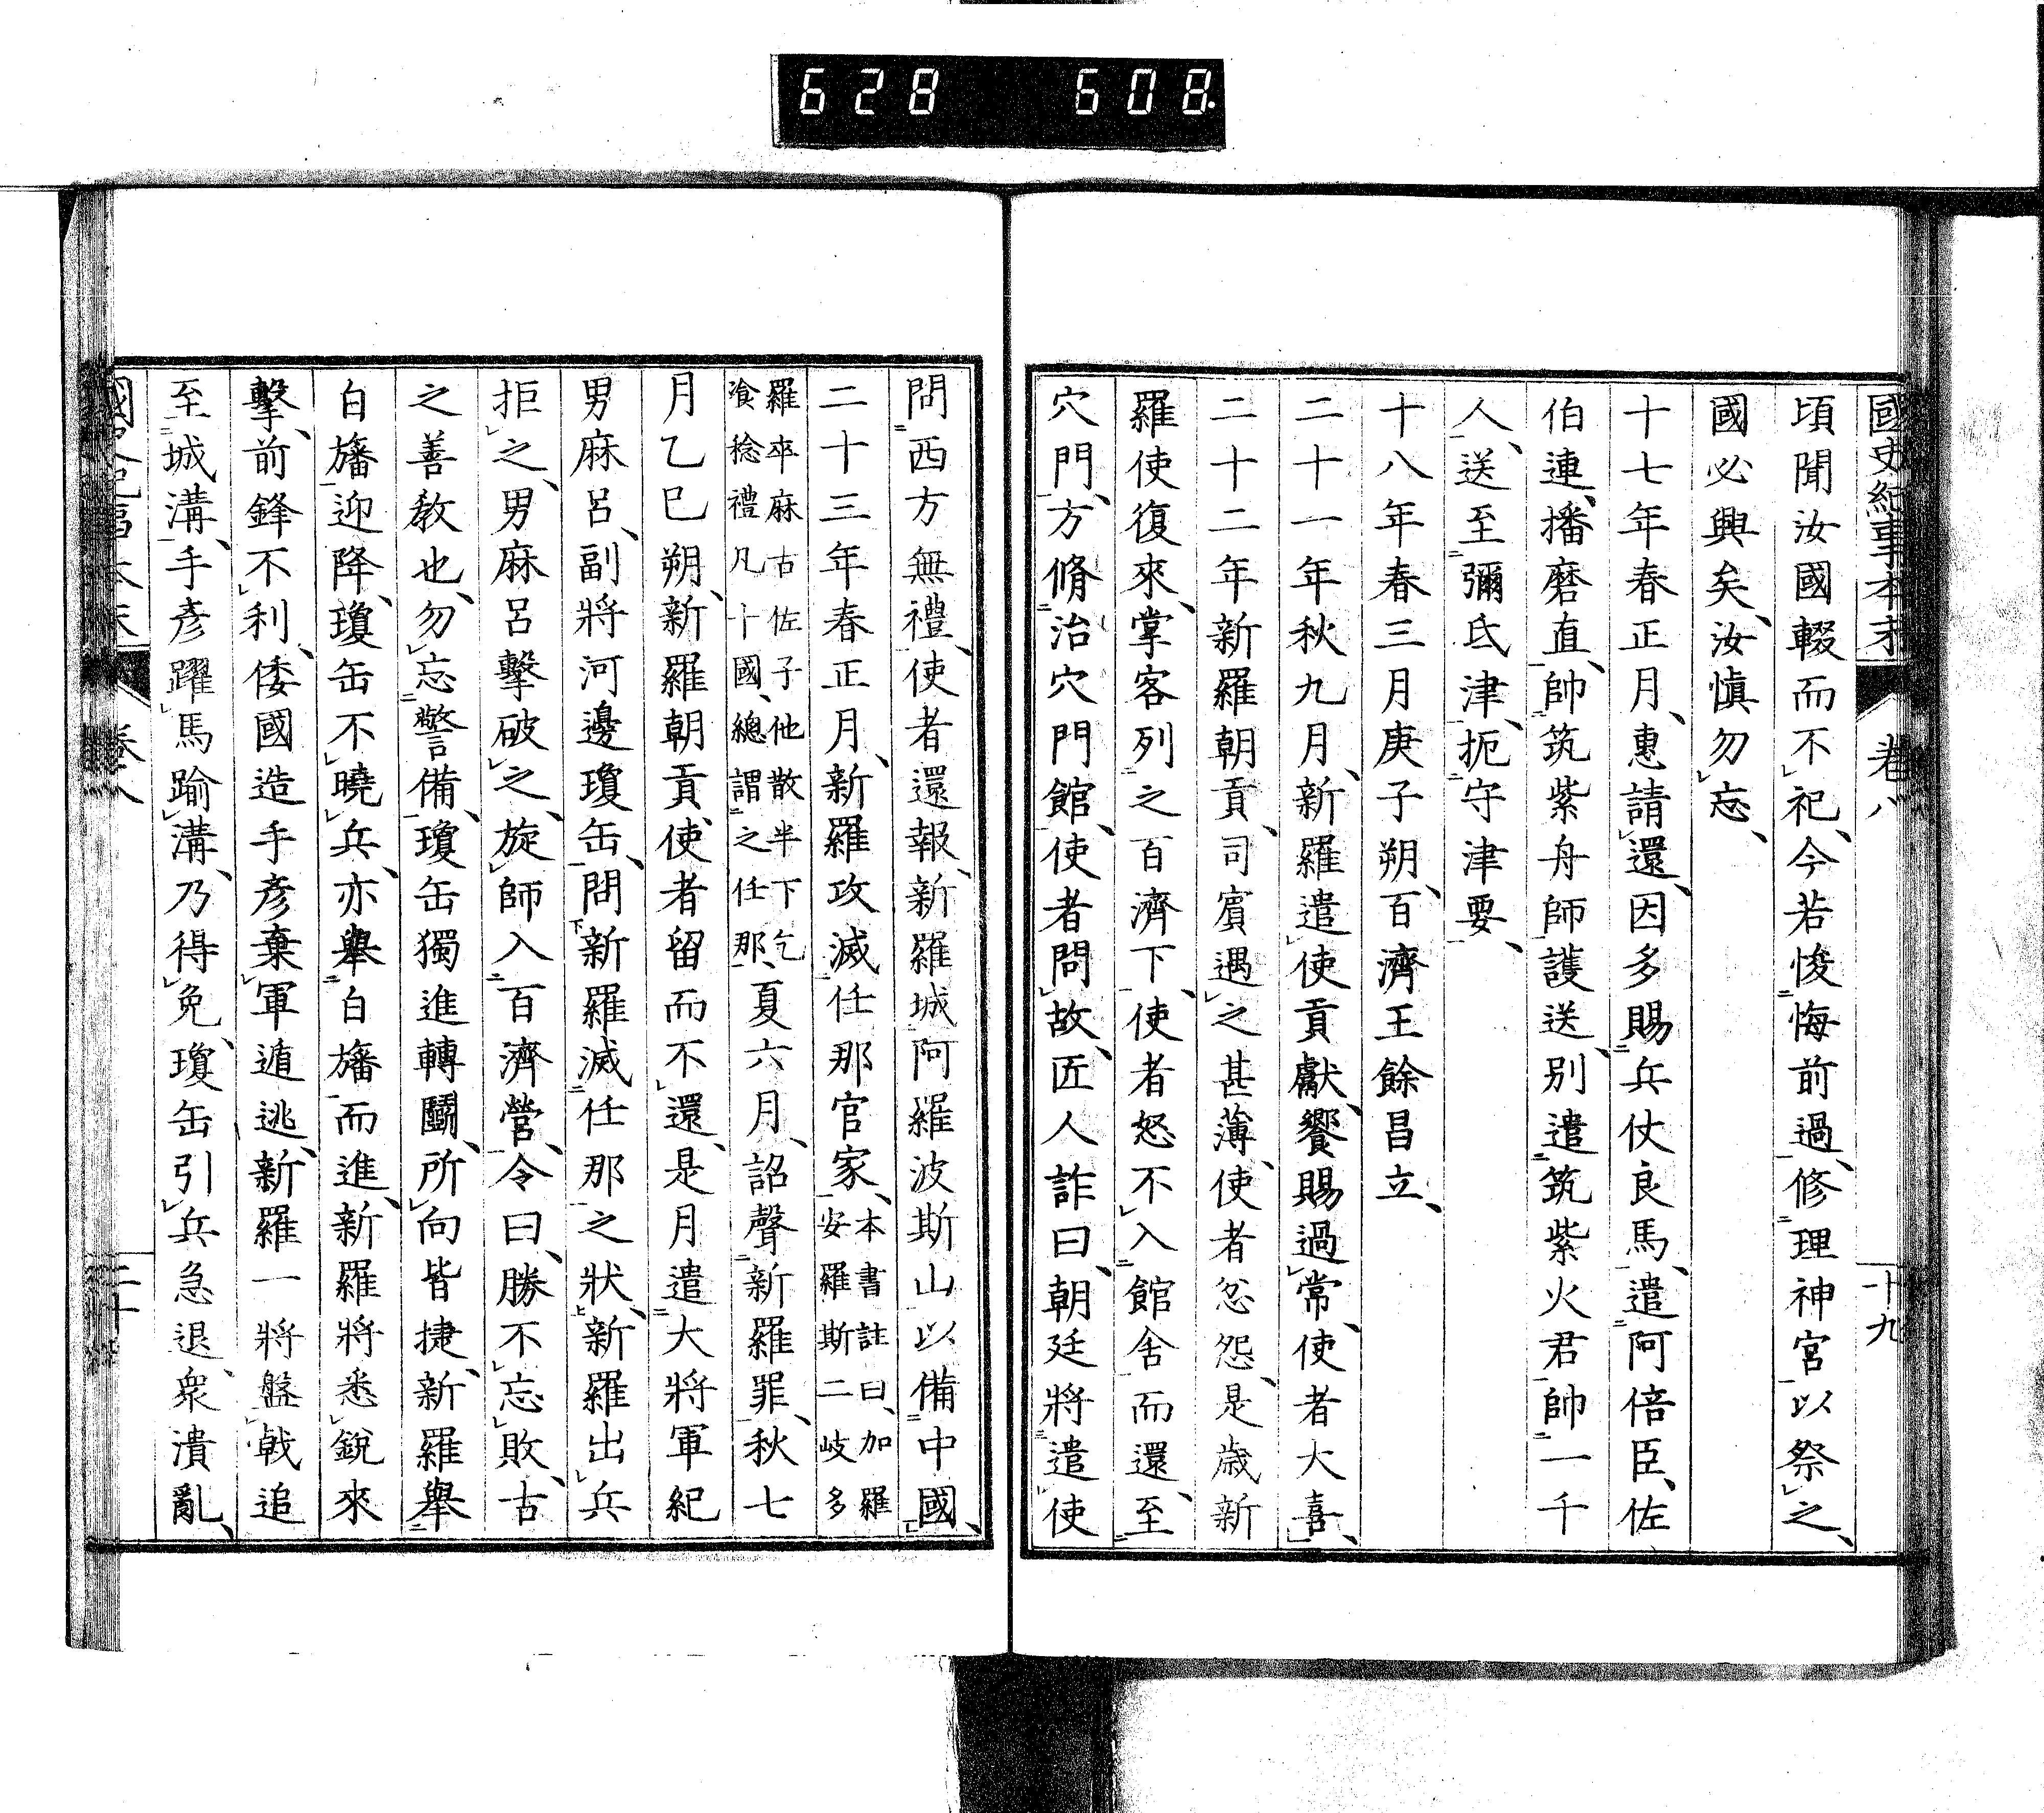 628 608
國史紀事本末 卷八 十九
頃聞汝國輟而不祀、今若悛悔前過、修理神宮以祭之、
國必興矣、汝愼勿忘、
十七年春正月、惠請還、因多賜兵仗良馬、遣阿倍臣、佐
伯連、播磨直、帥筑紫舟師護送、別遣筑紫火君帥一千
人、送至彌氐津、扼守津要、
十八年春三月庚子朔、百濟王餘昌立、
二十一年秋九月、新羅遣使貢獻、饗賜過常、使者大喜、
二十二年新羅朝貢、司賓遇之甚薄、使者忿怨、是歳新
羅使復來、掌客列之百濟下、使者怒不入館舍而還、至
穴門、方脩治穴門館、使者問故、匠人詐曰、朝廷將遣使
問西方無禮、使者還報、新羅城阿羅波斯山以備中國、
二十三年春正月、新羅攻滅任那官家、本書註曰、加羅安羅斯二岐多
羅卒麻古佐子他散半下乞飡稔禮凡十國、總謂之任那、夏六月、詔聲新羅罪、秋七
月乙巳朔、新羅朝貢、使者留而不還、是月遣大將軍紀
男麻呂、副將河邊瓊缶、問新羅滅任那之狀、新羅出兵
拒之、男麻呂擊破之、旋師入百濟營、令曰、勝不忘敗、古
之善教也、勿忘警備、瓊缶獨進轉鬪、所向皆捷、新羅舉
白旛迎降、瓊缶不曉兵、亦舉白旛而進、新羅將悉銳來
擊、前鋒不利、倭國造手彥棄軍遁逃、新羅一將盤戟追
至城溝、手彥躍馬踰溝、乃得免、瓊缶引兵急退、衆潰亂、
國史紀事本末 卷八 二十